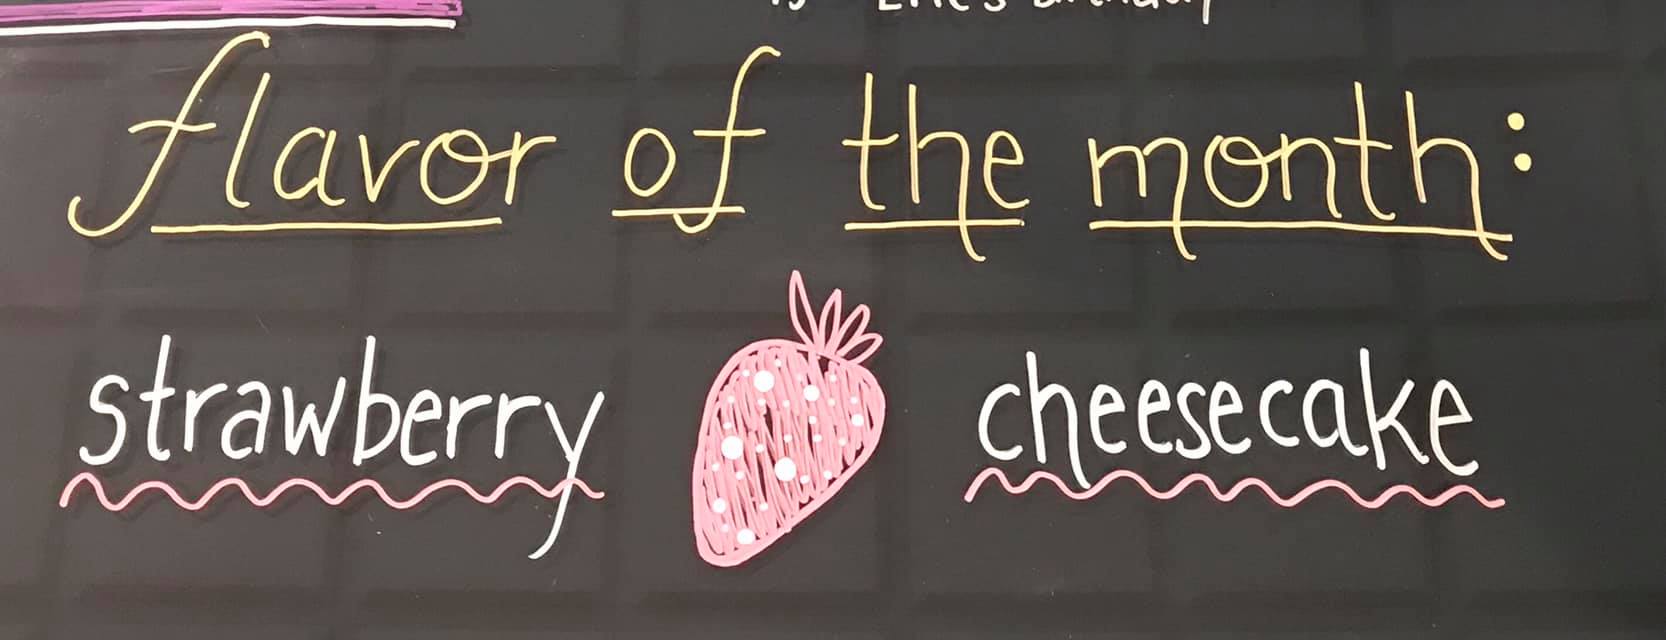 flavor of the month:
strawberry cheesecake